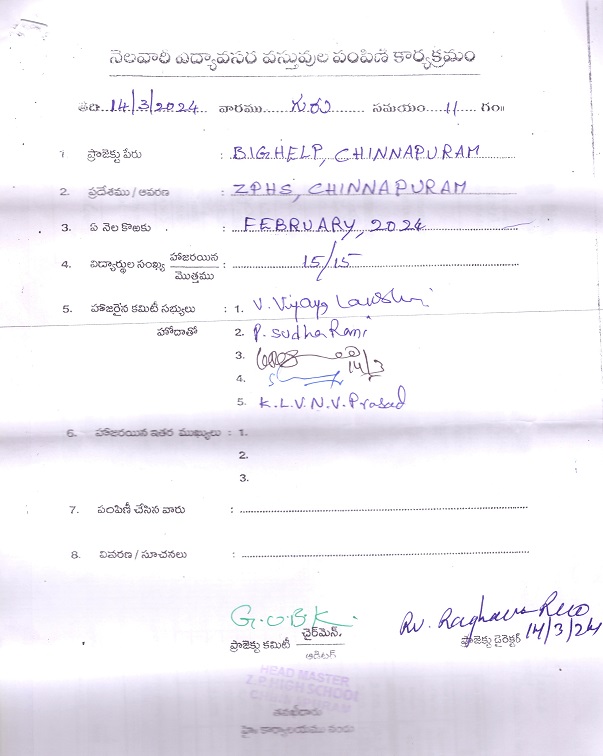 నెలవారీ విద్యావసర వస్తువుల పంపిణీ కార్యక్రమం
తేది..14/3/2024.. వారము.....గురు........ సమయం....11.... గం॥
1 ప్రాజెక్టు పేరు : BIGHELP, CHINNAPURAM
2. ప్రదేశము / ఆవరణ : ZPHS, CHINNAPURAM
3. ఏ నెల కొఱకు : FEBRUARY, 2024
4. విద్యార్థుల సంఖ్య హాజరయిన / మొత్తము : 15/15
5. హాజరైన కమిటీ సభ్యులు : 1. V. Vijaya Lawshmi
హోదాతో 2. P. Sudha Rani
3. 14/3
4.
5. K.L.V.N.V. Prasad
6. హాజరయిన ఇతర ముఖ్యులు : 1.
2.
3.
7. పంపిణీ చేసిన వారు :
8. వివరణ / సూచనలు :
G.O.B.K. RV. Raghava Rao
ప్రాజెక్టు కమిటీ ఛైర్‌మెన్. / ఆడిటర్ ప్రాజెక్టు డైరెక్టర్ 14/3/24
HEAD MASTER
Z.P. HIGH SCHOOL
CHINNAPURAM
తనఖీదారు
హై కార్యాలయము నందు